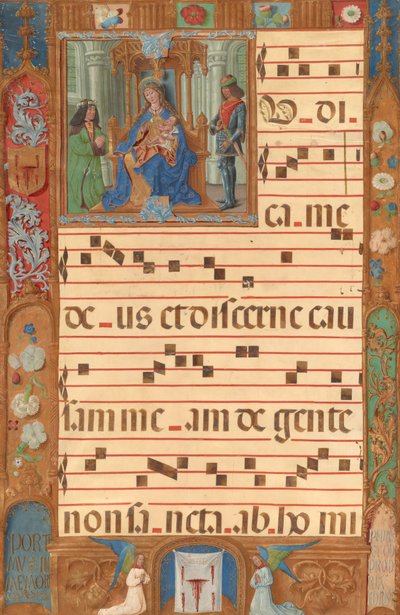 U_di_
ca_me
de_us et discerne cau
sam me_am de gente
non sa_ncta_ab_ho mi
PORT